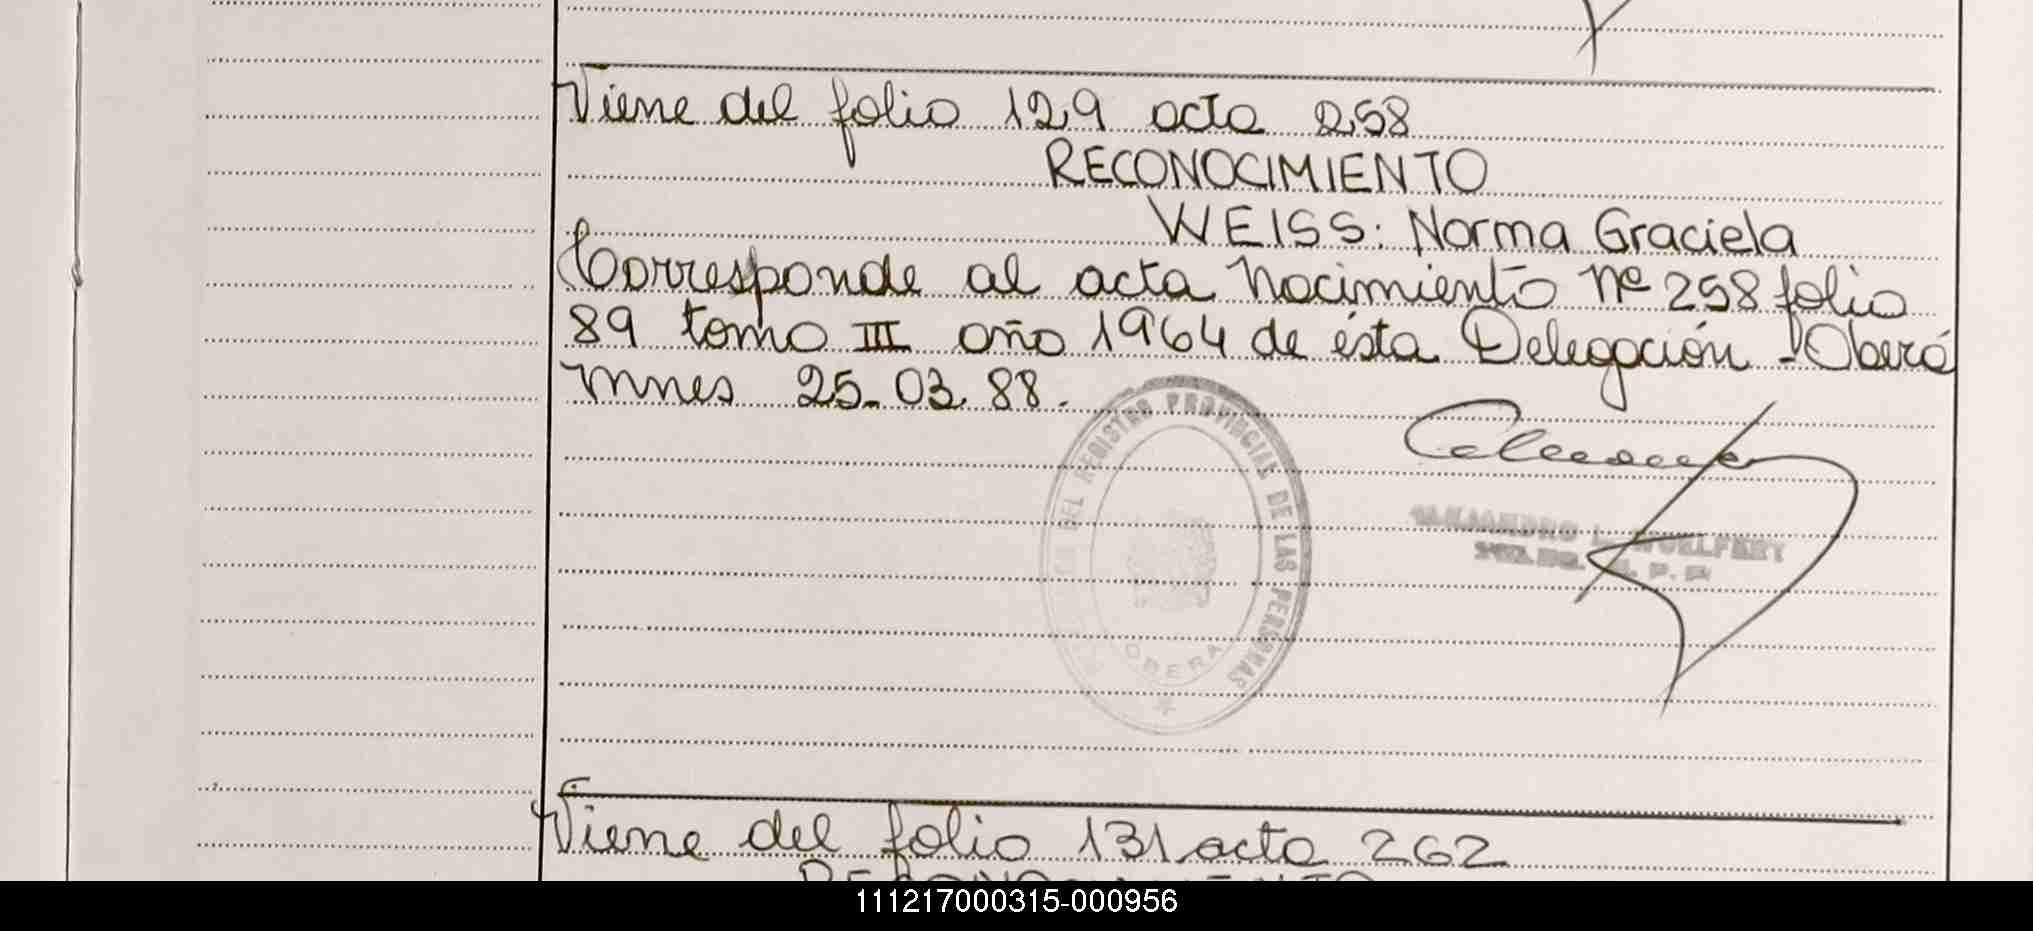 Viene del folio 129 acta 258
RECONOCIMIENTO
WEISS: Norma Graciela
Corresponde al acta Nacimiento Nº 258 folio
89 tomo III año 1964 de ésta Delegación - Oberá
Mnes 25-03.88.
DEL REGISTRO PROVINCIAL DE LAS PERSONAS
OBERA
Viene del folio 131 acta 262
RECONOCIMIENTO
111217000315-000956